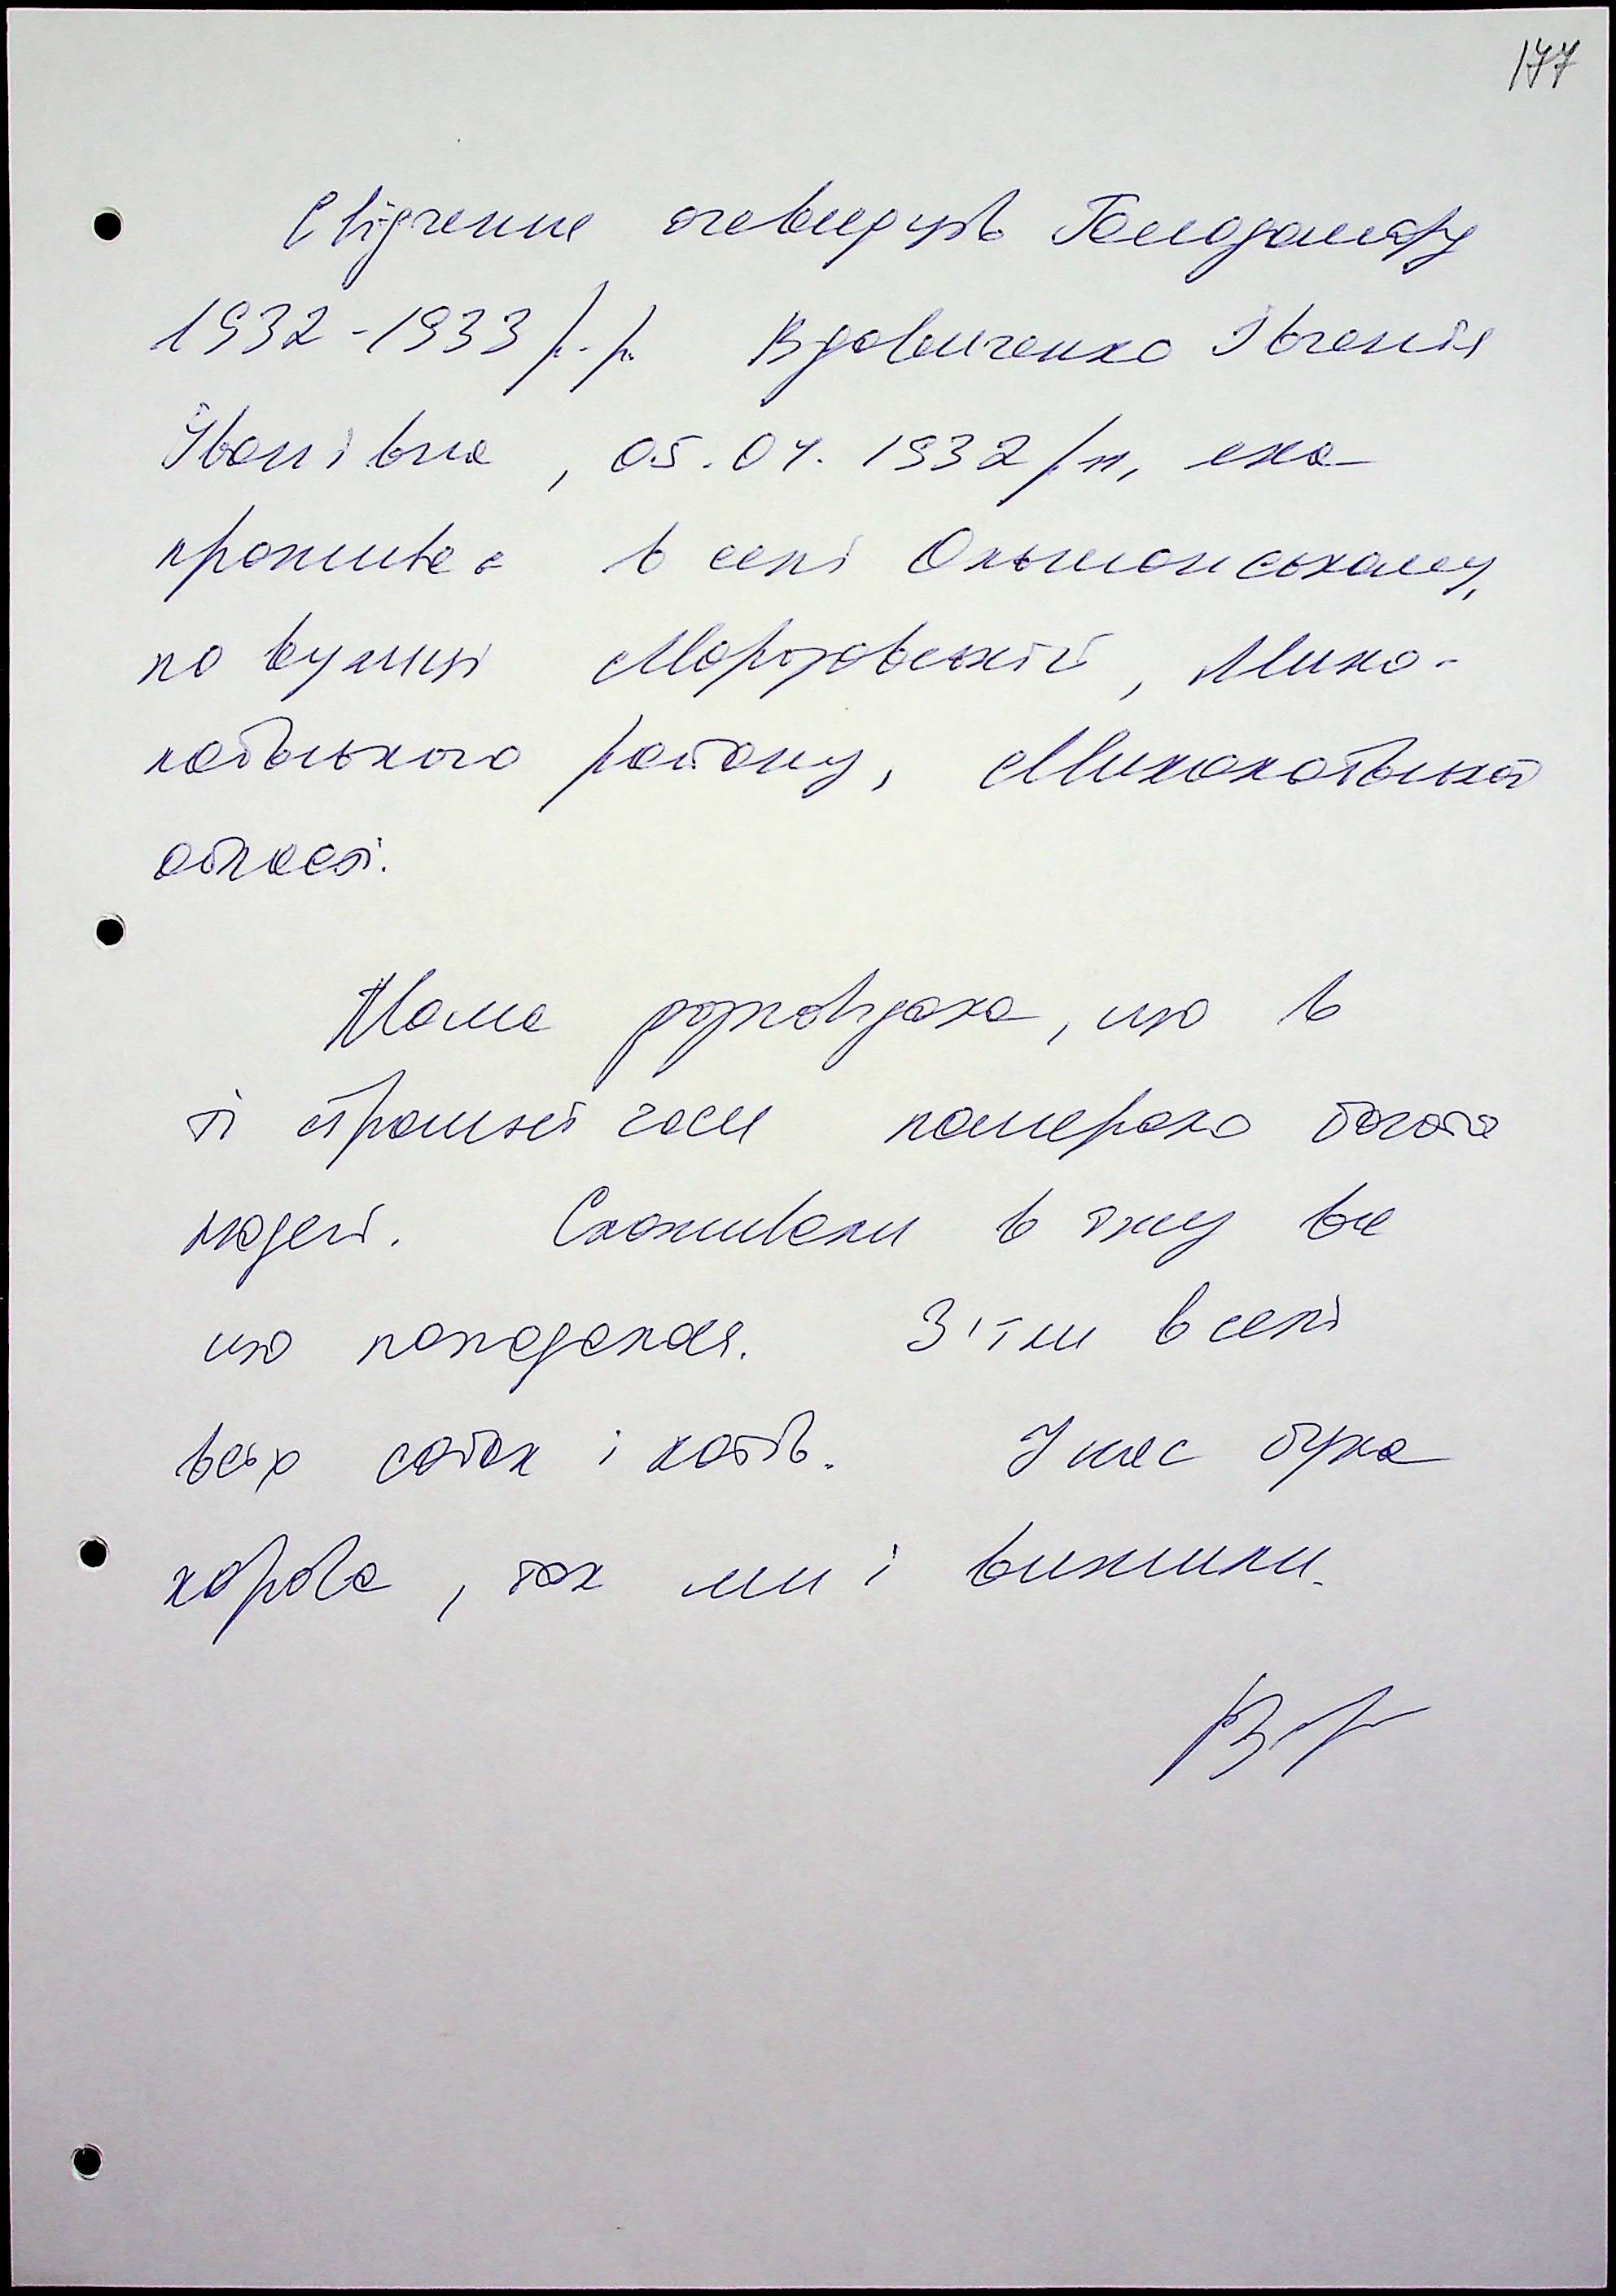 177
Свідчення очевидців Голодомору
1932-1933 р.р. Вдовиченко Євгенія
Іванівна, 05.04.1932 р.н, яка
проживає в селі Ольшанському,
по вулиці Морозовській, Мико-
лаївського району, Миколаївської
області.
Мама розповідала, що в
ті страшні часи померало багато
людей. Споживали в їжу все
що попадалося. З'їли в селі
всіх собак і котів. У нас була
корова, так ми і вижили.